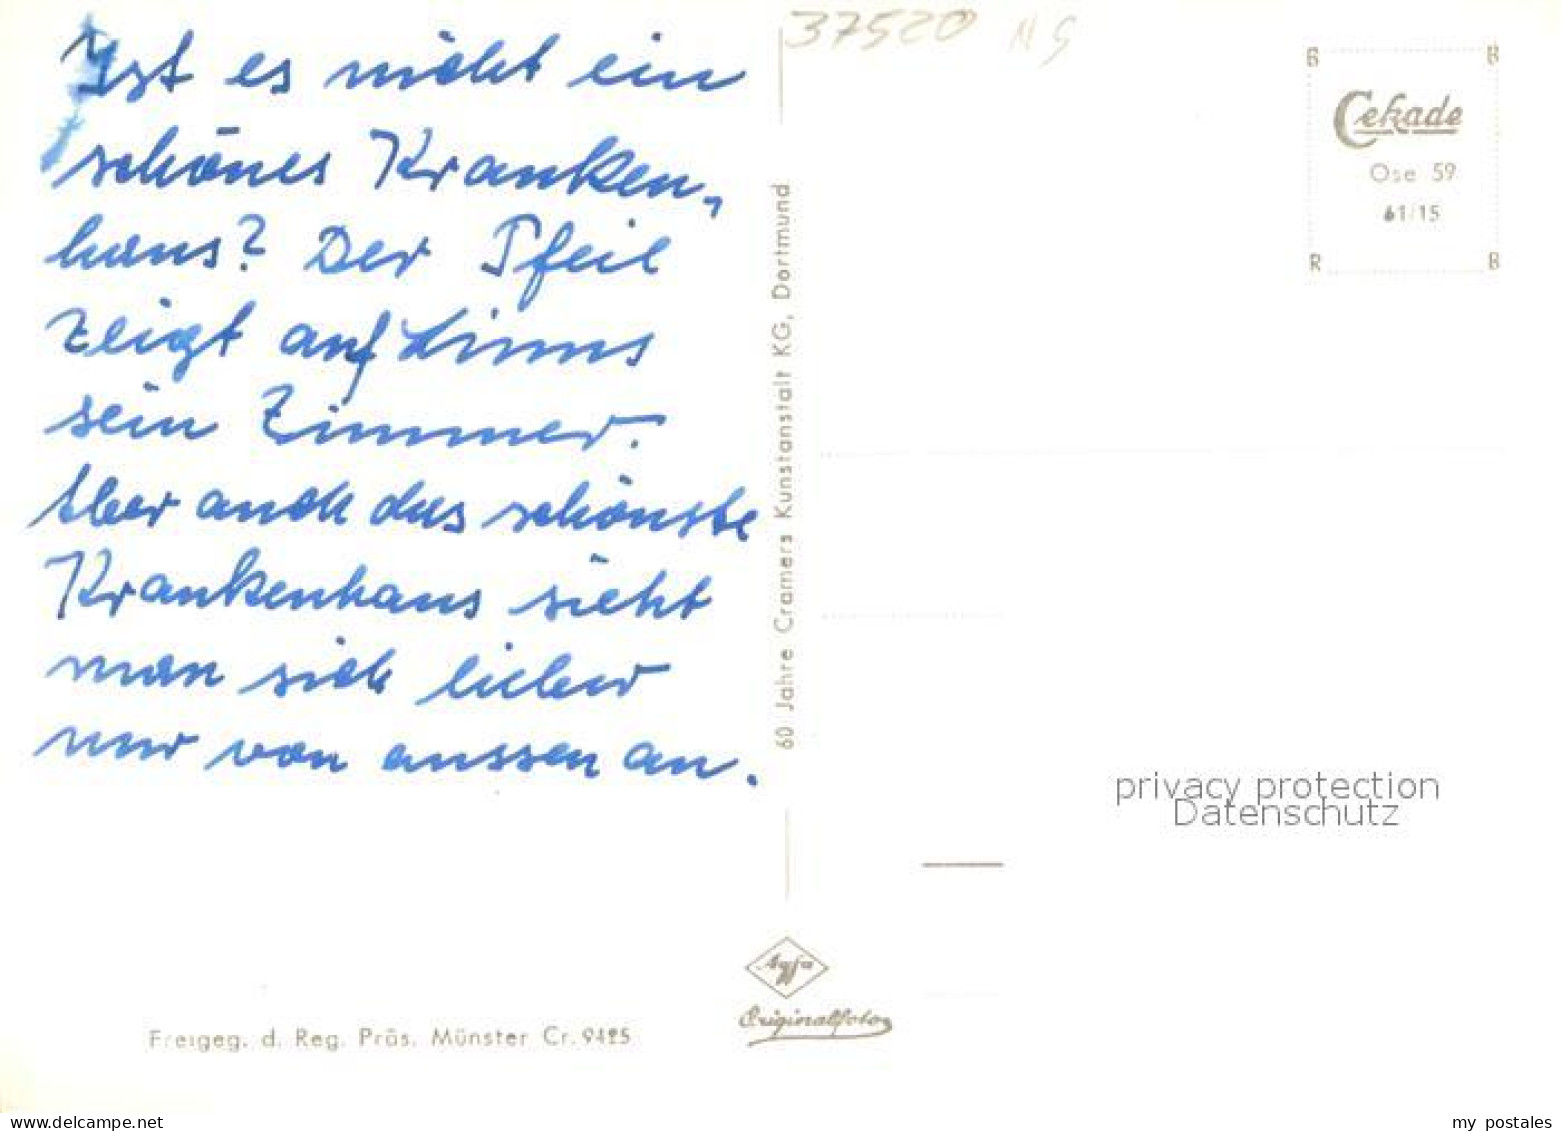 Ist es nicht ein
schönes Kranken-
haus? Der Pfeil
zeigt auf Linus
sein Zimmer.
Aber auch das schönste
Krankenhaus sieht
man sich lieber
nur von aussen an.
Freigeg. d. Reg. Präs. Münster Cr. 9425
60 Jahre Cramers Kunstanstalt KG, Dortmund
Agfa
Originalfoto
37520 NS
B B
Cekade
Ose 59
61/15
R B
privacy protection
Datenschutz
my postales